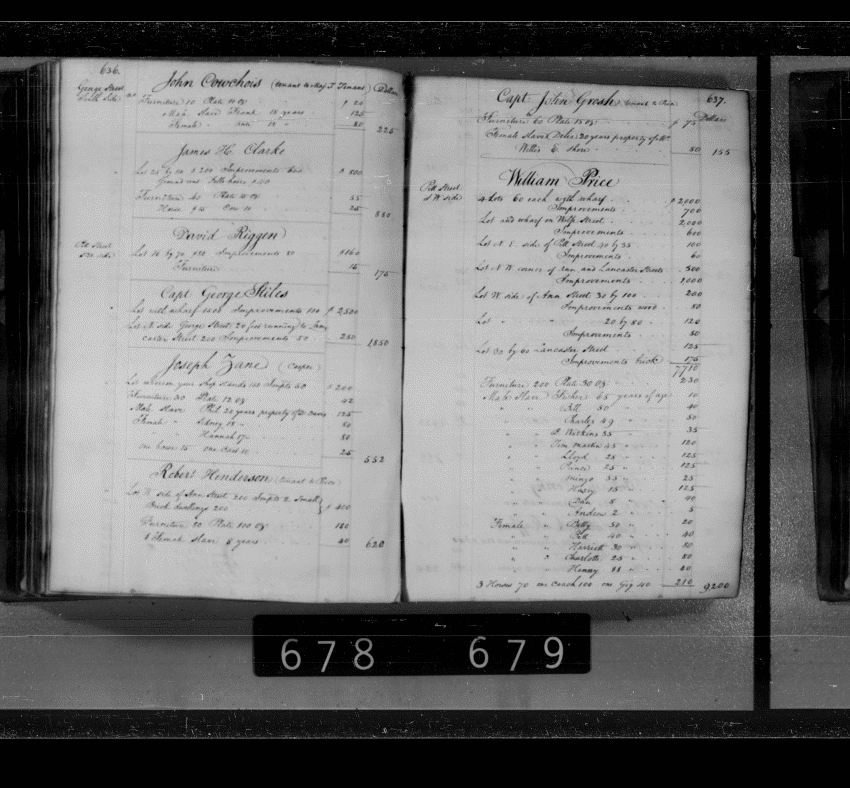 636.
George Street
South Side
John Cowchois (tenant to Maj T Tenant) Dollars
Furniture 10 Plate 10 oz $ 20
Male Slave Frank 18 years 125
Female 80
225
James H. Clarke
Lot 25 by 80 $ 200 Improvements 600 $ 800
Ground rent
Furniture 40 Plate 15 oz 55
Horse $15 Cow 10 25
880
Pitt Street
David Riggen
Lot 16 by 70 $80 Improvements 80 $160
Furniture 15
175
Capt George Stiles
Lot with wharf 1500 Improvements 100 $
Lot N. side George Street 20 feet running to Lan
caster Street 200 Improvements 50 250
1850
Joseph Zane
Lot whereon your Shop stands 150 Impts 50 $ 200
Furniture 30 Plate 12 oz 42
Male Slave Phil 20 years property of 125
Female Sidney 18 80
Hannah 17 80
one horse 15 one Cart 10 25
552
Robert Henderson (tenant to Price)
Lot W side of Ann Street 200 Impts 2 Small
Brick dwellings 200 $ 400
Furniture 80 Plate 100 oz 180
1 Female Slave 8 years 40
620
637.
Capt John Groah tenant to Dollars
Furniture 60 Plate 15 oz $ 75
Female Slave 20 years property of
80 155
Pitt Street
S W side
William Price
4 Lots 60 each with wharf $ 2,000
Improvements 700
Lot and wharf on Wolfe Street 2,000
Improvements 600
Lot N. E. side of Pitt Street 40 by 35 100
Improvements 60
Lot N. W. corner of Ann and Lancaster Streets 500
Improvements 1,000
Lot W. side of Ann Street 30 by 100 200
Improvements wood 80
Lot " " 20 by 80 120
Improvements 50
Lot 30 by 60 Lancaster Street 125
Improvements brick 175
7710
Furniture 200 Plate 30 oz 230
Male Slave Fisher 65 years of age 10
" " Bill 50 " 40
" " Charles 49 " 50
" " P. Watkins 35 35
" " Tom Martin 45 " 120
" " Lloyd 25 " 125
" " Prince 25 " 125
" " Mingo 55 " 25
" " Henry 18 " 125
" " Dan 8 " 40
" " Andrew 2 " 5
Female " Betty 50 " 20
" " Pitt 40 " 40
" " Harriett 30 " 80
" " Charlotte 25 " 80
" " Henny 80
3 Horses 70 one Coach 100 one Gig 40 210 9200
678 679